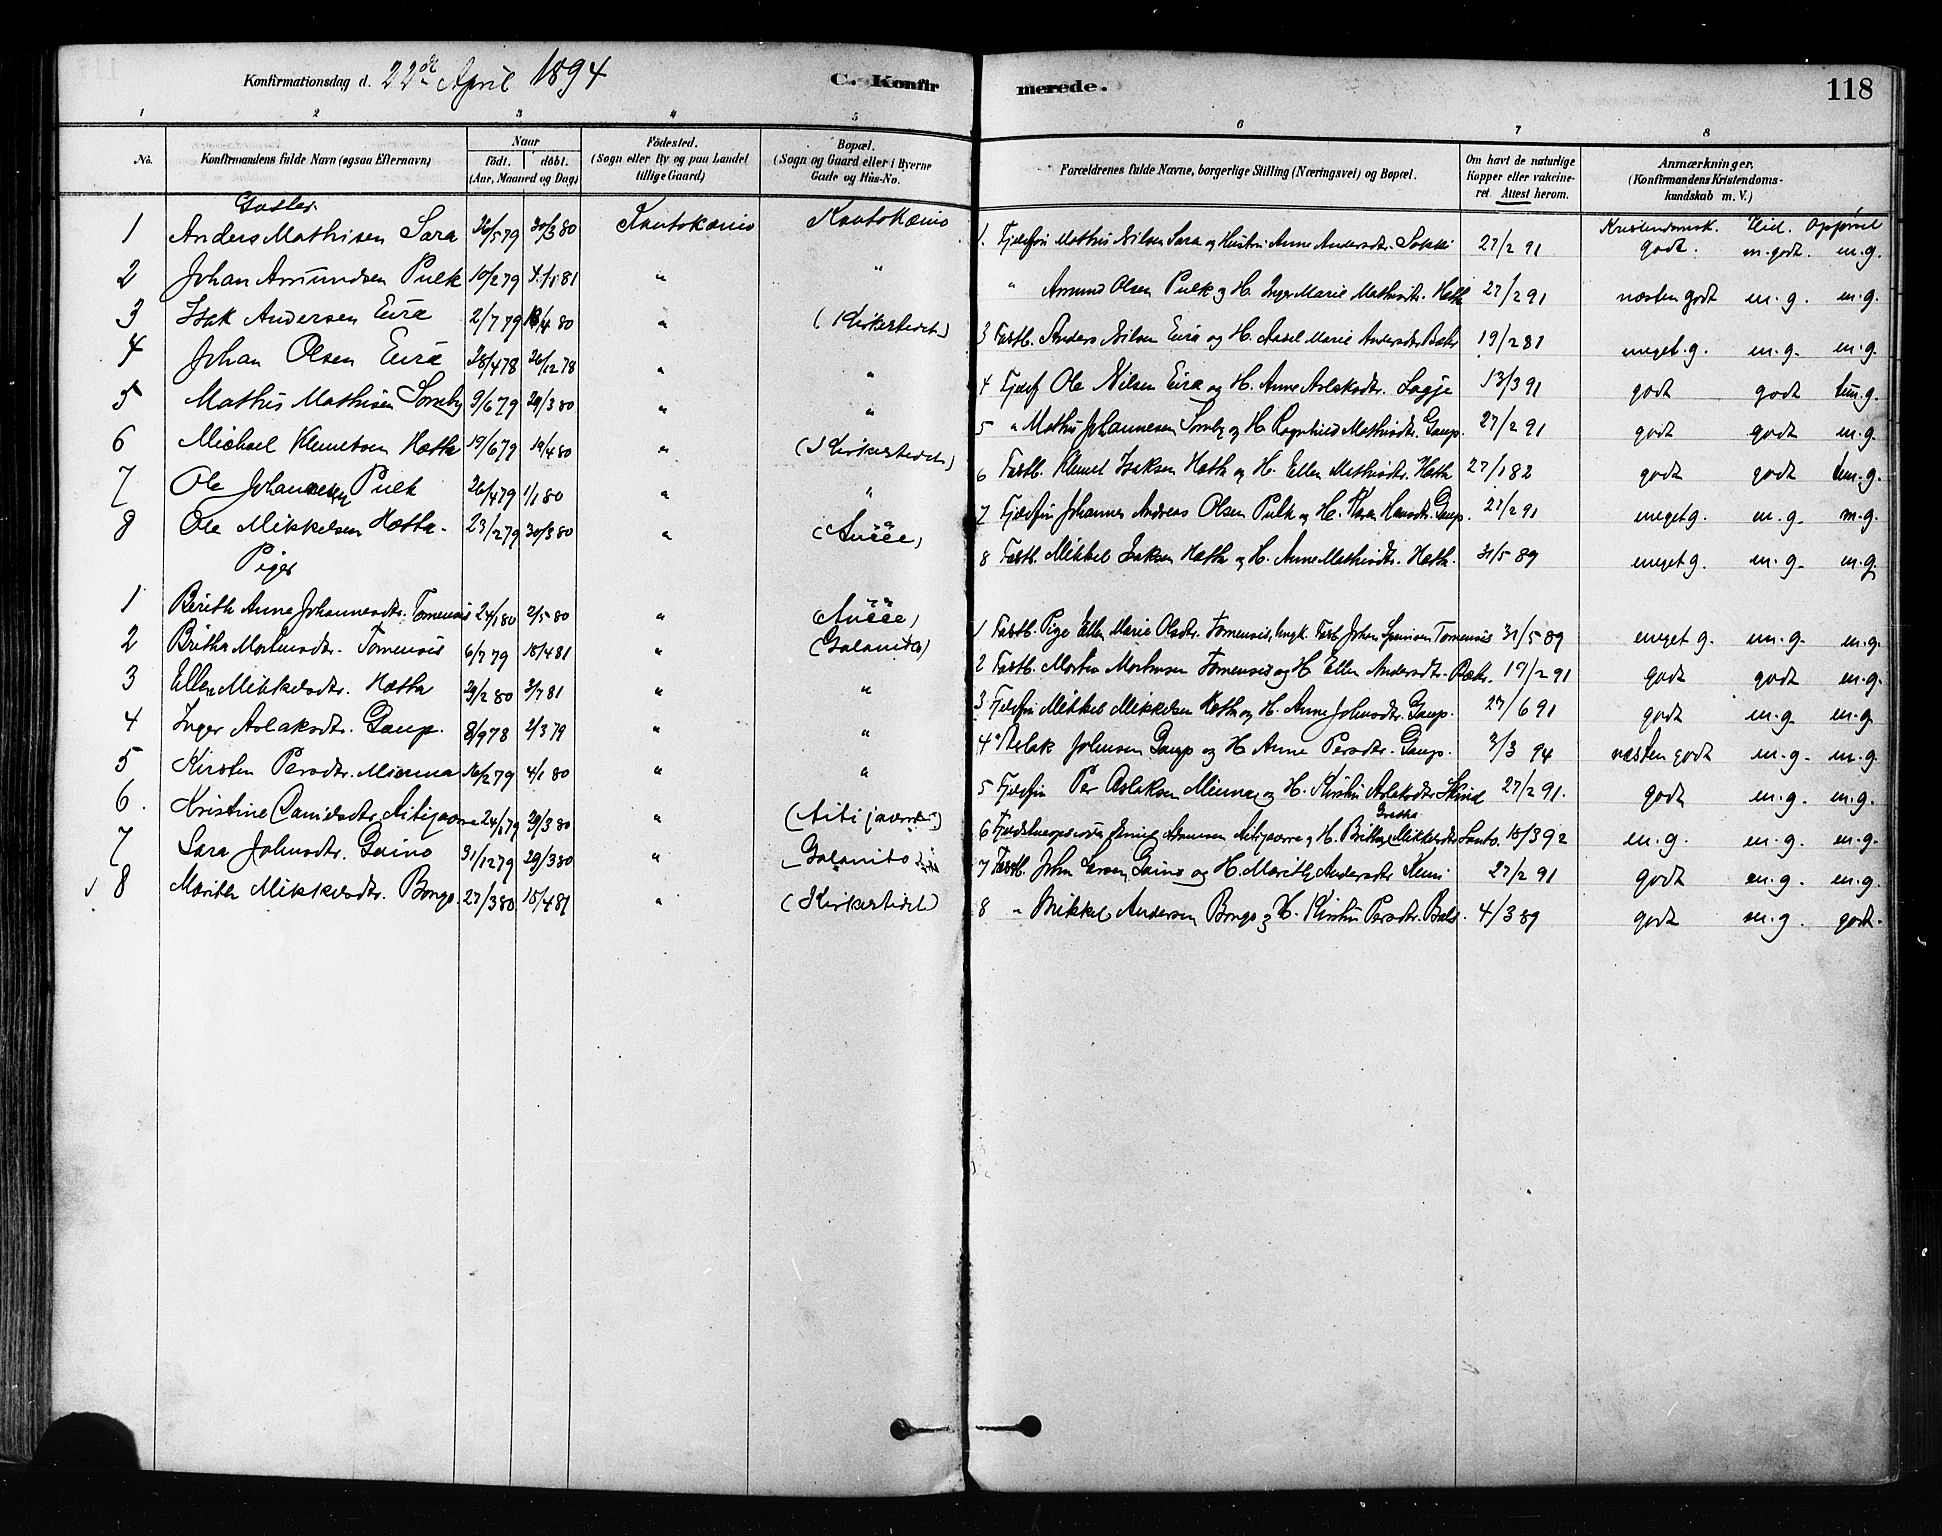 Konfirmationsdag d. 22de April 1894
C. Konfirmerede.
118
1 2 3 4 5 6 7 8
No.
Konfirmandens fulde Navn (ogsaa Efternavn)
Naar
födt. döbt.
(Aar, Maaned og Dag)
Födested.
(Sogn eller By og paa Landet
tillige Gaard)
Bopæl.
(Sogn og Gaard eller i Byerne
Gade og Hus-No.
Forældrenes fulde Navne, borgerlige Stilling (Næringsvei) og Bopæl.
Om havt de naturlige
Kopper eller vakcine-
ret. Attest herom.
Anmærkninger.
(Konfirmandens Kristendoms-
kundskab m. V.)
Kristendomsk. Flid. Opførsel
Gutter
1 Anders Mathisen Sara 26/5 79 30/3 80 Kautokæino Kautokæino 1. Fjeldfin Mathis Nilsen Sara og Hustru Anne Andersdtr. 27/2 91 godt. m. godt. m. g.
2 Johan Amundsen Pulk 10/2 79 4/1 81 " " " Amund Olsen Pulk og H. Inger Marie Mathisdtr. Hætta 27/2 91 næsten godt m. g. m. g.
3 Isak Andersen Eira 2/7 79 /4 80 " (Kirkestedet) 3 Fastb. Anders Nilsen Eira og H. Marie Andersdtr Bær 19/2 81 meget g. m. g. m. g.
4 Johan Olsen Eira 28/4 78 26/12 78 " " 4 Fjeldf Ole Nilsen Eira og H. Anne Aslaksdtr. Logje 13/3 91 godt godt m. g.
5 Mathis Mathisen Somby 9/6 79 29/3 80 " " 5 " Mathis Johannesen Somby og H Ragnhild Mathisdtr. Gaup. 27/2 91 godt godt m. g.
6 Michael Klemetsen Hætta 19/6 79 19/4 80 " (Kirkestedet) 6 Fastb. Klemet Isaksen Hætta og H. Ellen Mathisdtr. Hætta 27/1 82 godt godt m. g.
7 Ole Johannesen Pulk 26/4 79 1/1 80 " " 7 Fjeldfin Johannes Andreas Olsen Pulk og H. Karen Hansdtr. Gaup. 27/2 91 meget g. m. g. m. g.
8 Ole Mikkelsen Hætta. 23/2 79 30/3 80 " 8 Fastb. Mikkel Isaksen Hætta og H. Anne Mathisdtr. Hætta. 31/5 89 meget g. m. g. m. g.
Piger
1 Berith Anne Johannesdtr. Tornensis 24/1 80 2/5 80 " 1 Fastb. Pige Ellen Marie Olsdtr. Tornensis, Johan Tornensis 31/5 89 meget g. m. g. m. g.
2 Britha Mortensdtr. Tornensis 6/7 79 18/4 81 " (Galanito) 2 Fastb. Morten Mortensen Tornensis og H Ellen Andersdtr. Bær. 19/2 91 godt godt m. g.
3 Ellen Mikkelsdtr. Hætta 29/2 80 3/7 81 " " 3 Fjeldfin Mikkel Mikkelsen Hætta og H. Anne Johnsdtr. Gaup. 27/6 91 godt m. g. m. g.
4 Inger Aslaksdtr. Gaup. 8/9 78 2/3 79 " " 4 " Aslak Johnsen Gaup og H Anne Persdtr. Gaup. 3/3 94 næsten godt m. g. m. g.
5 Kirsten Persdtr. Mienna 16/2 79 4/1 80 " " 5 Fjeldfin Per Aslaksen Mienna og H. Kirstin Aslaksdtr 27/2 91. godt m. g. m. g.
6. Kristine Aitijavre 24/1 79 29/3 80 " (Aitijavrre) 6 Aitijavrre og H. Britha Gretha Mikkelsdtr 18/3 92 m. g. m. g. m. g.
7 Sara Johnsdtr. Gaino 31/12 79 29/3 80 " Galanito 7 Fastb. John Larsen Gaino og H. Marith Andersdtr 27/2 91 godt m. g. m. g.
8 Marith Mikkelsdtr. Bongo. 27/3 80 15/4 81 " (Kirkestedet) 8 " Mikkel Andersen Bongo og H. Kirstin Persdtr. 4/3 89 godt m. g. godt.